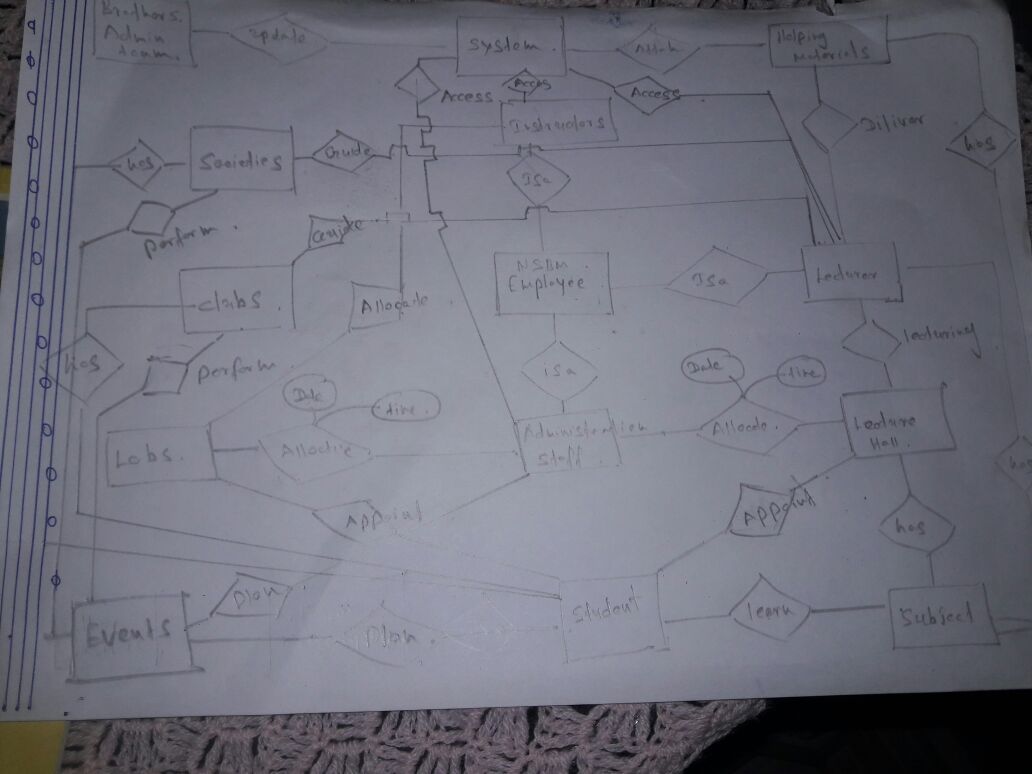 Brothers.
Admin
team.
update
System.
Attach
Helping
Materials
Access
Acces
Access
Instructors
Diliver
has
has
Societies
Guide
Isa
perform.
Guide
NSBM
Employee
Isa
Lecturer
clubs.
Allocate
lecturing
has
perform
isa
Date
time.
Date
time
Labs.
Allocate
Administration
Staff
Allocate.
Lecture
Hall.
has
Appoint
Appoint
has
Events
Plan
Plan
Student
learn
Subject